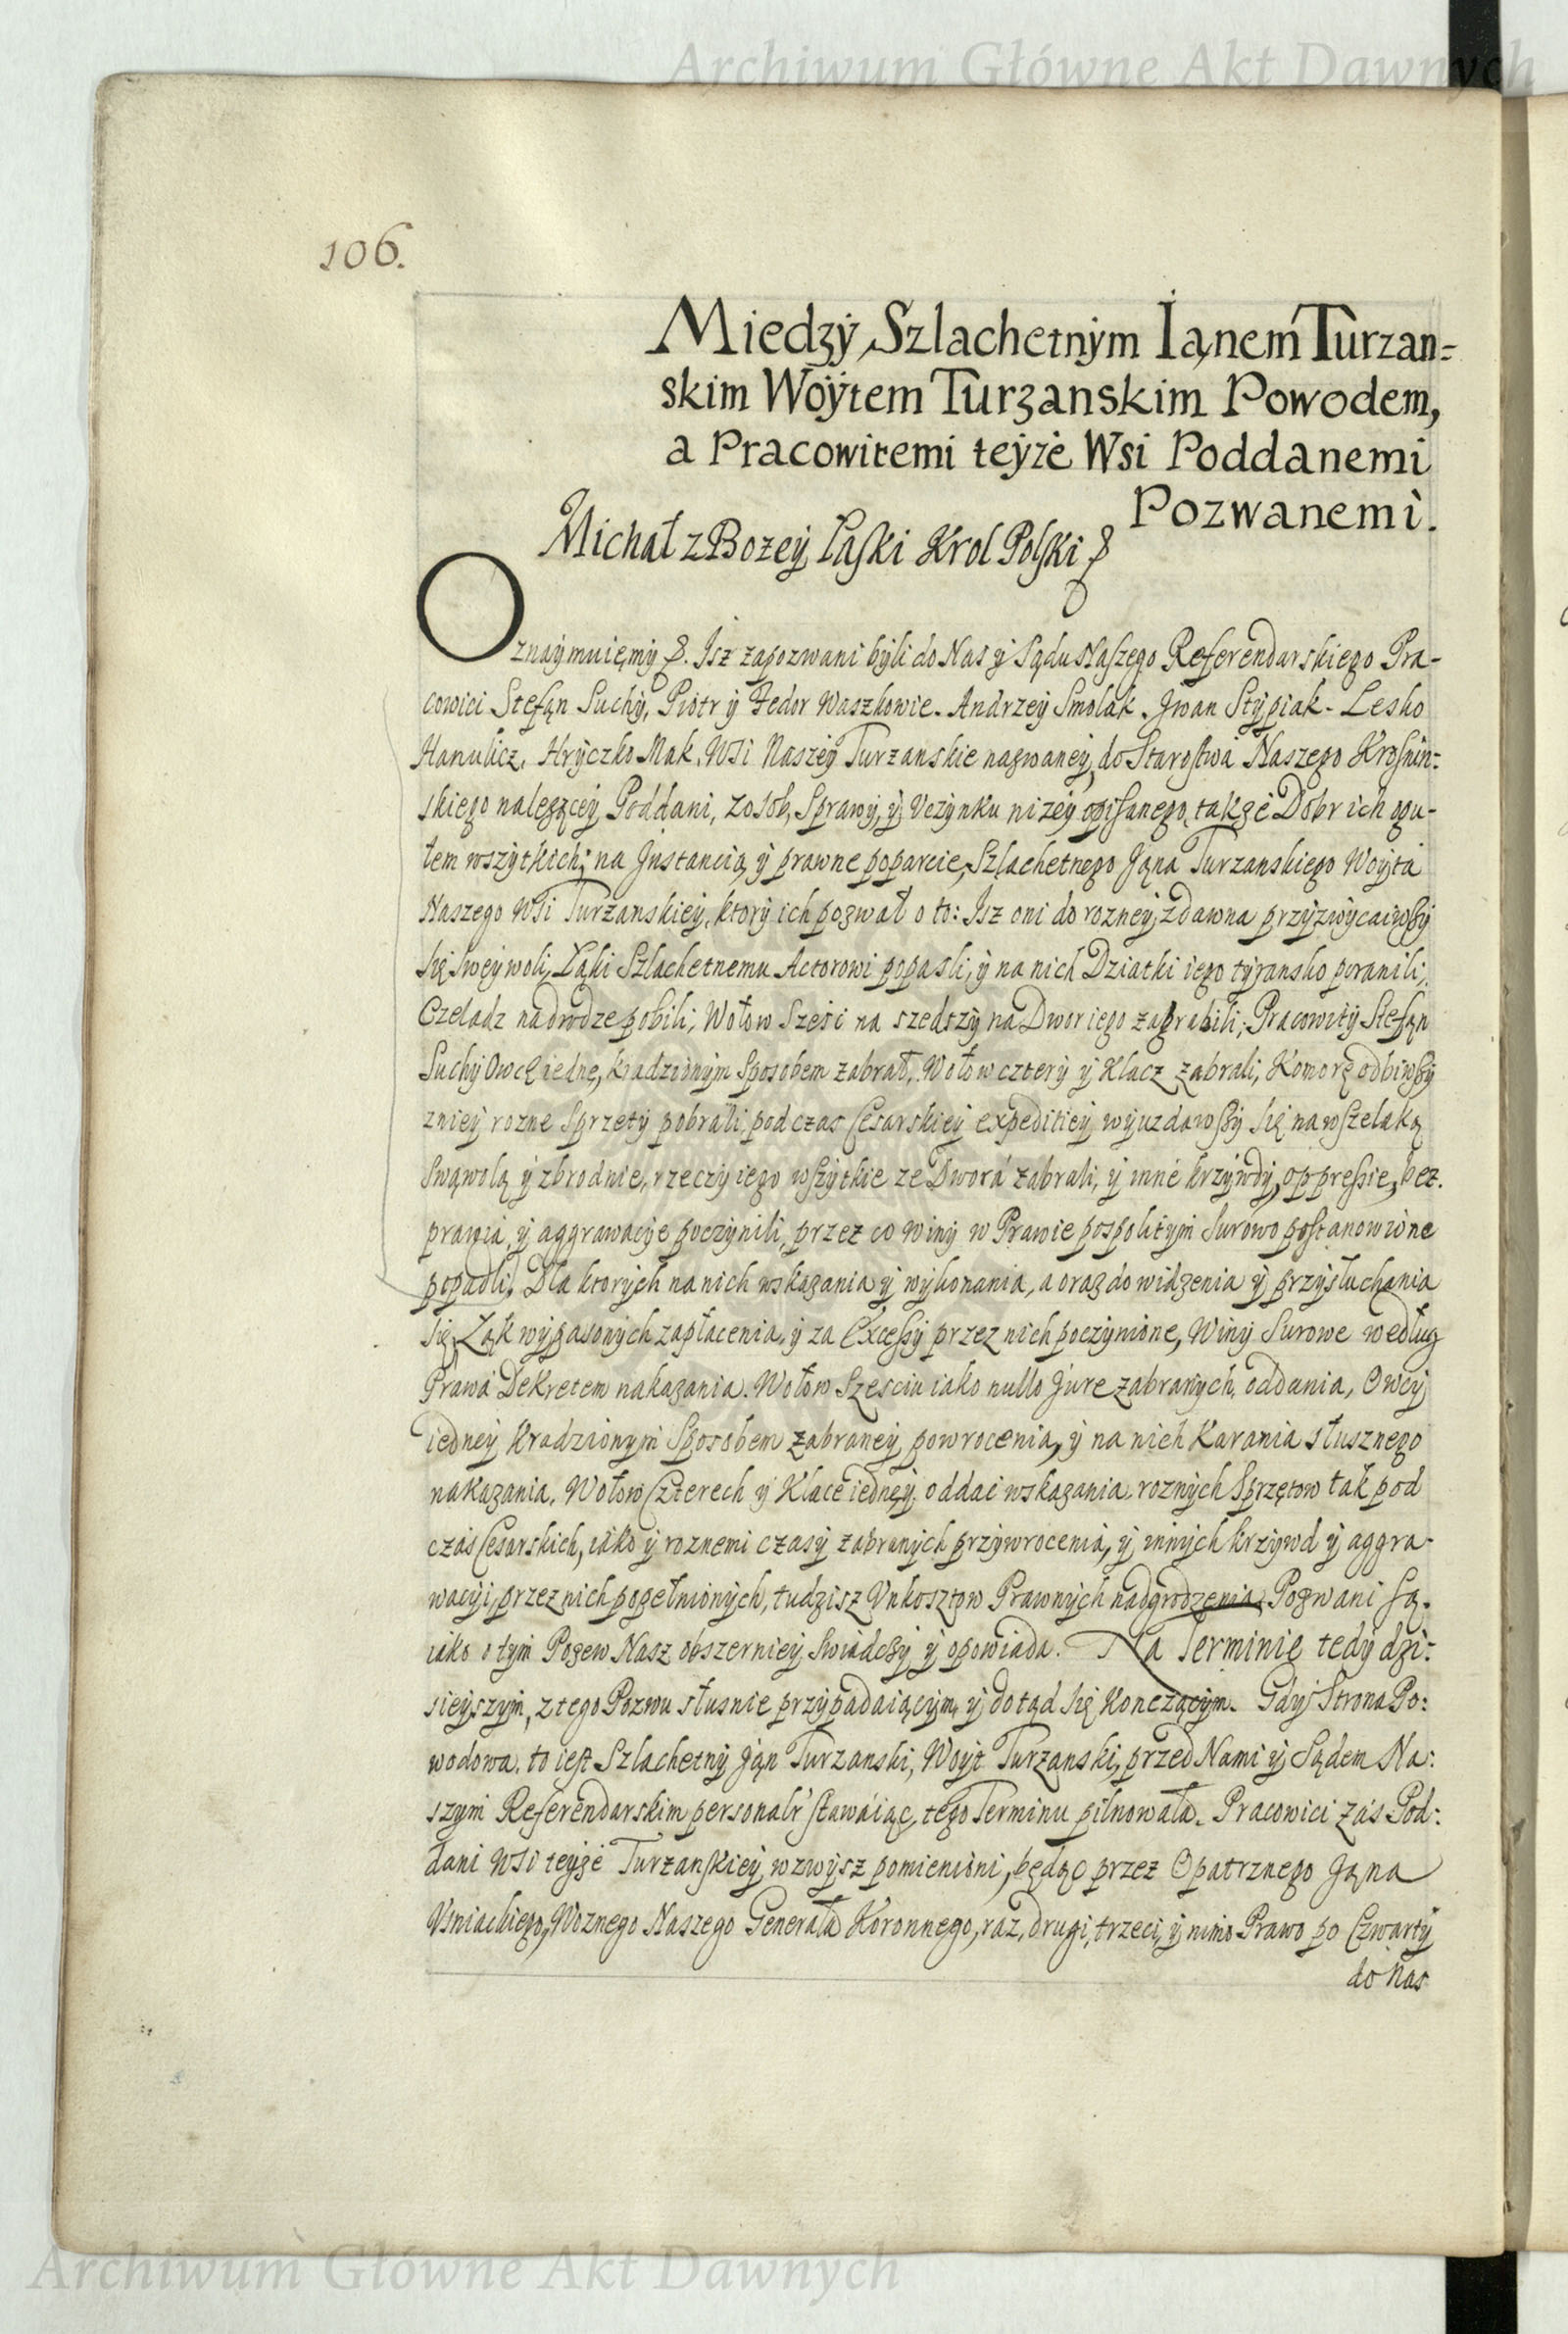 Archiwum Główne Akt Dawnych
106.
Miedzÿ Szlachetnÿm Iąnem Turzan=
skim Woÿtem Turzanskim Powodem,
a Pracowitemi teÿże Wsi Poddanemi
Pozwanemi.
Michał z Bozeÿ Łaski Krol Polski &
Oznaÿmuięmÿ &. Jsz zapozwani bÿli do Nas ÿ Sądu Naszego Referendarskiego Pra-
cowici Stefąn Suchÿ, Piotr ÿ Fedor Waszkowie. Andrzeÿ Smolak. Jwan Stÿpiak. Lesko
Hanulicz, Hrÿczko Mak, WSi Naszeÿ Turzanskie nazwaneÿ, do Starostwa Naszego Krosnin:
skiego należąceÿ Poddani, z osob, Sprawÿ, ÿ Vczÿnku niżeÿ opisanego, takżé Dobr ich ogu-
łem wszÿtkich; na Jnstancią ÿ prawne poparcie, Szlachetnego Jąna Turzanskiego Woÿta
Naszego WSi Turzanskieÿ, ktorÿ ich pozwał o to: Jsz oni do rozneÿ zdawna przÿzwÿcaiwszÿ
się sweÿwoli, Łąki Szlachetnemu Actorowi popasli, ÿ na nich Dziatki iego tÿransko poranili,
Czeladz na drodze pobili, Wołow Szesi na szedszÿ na Dwor iego zagrabili, Pracowitÿ Stefąn
Suchÿ Owcę iednę, kradzionÿm Sposobem zabrał, Wołow czterÿ ÿ Klacz zabrali, Komorę odbiwszÿ
znieÿ rozne Sprzetÿ pobrali, podczas Cesarskieÿ expeditieÿ wÿuzdawszÿ się na wszelaką
Swąwolą ÿ zbrodnie, rzeczÿ iego wszÿtkie ze Dworá zabrali, ÿ inné krzÿwdÿ, oppressie, bez.
prawia, ÿ aggrawacÿe poczÿnili, przez co winÿ w Prawie pospolitÿm Surowo postanowione
popadli, Dla ktorÿch na nich wskazania ÿ wÿkonania, a oraz do widzenia ÿ przÿsłuchania
się, Łąk wÿpasonÿch zapłacenia, ÿ za Excessÿ przez nich poczÿnione, Winÿ Surowe według
Prawá Dekretem nakazania. Wołow Szesciu iako nullo Jure zabranÿch, oddania, Owcÿ
iedneÿ kradzionÿm Sposobem zabraneÿ powrocenia, ÿ na nich Karania słusznego
nakazania, Wołow Czterech ÿ Klace iedneÿ, oddać wskazania, roznÿch Sprzętow tak pod
czás Cesarskich, iako ÿ roznemi czasÿ zabranÿch przÿwrocenia, ÿ innÿch krzÿwd ÿ aggra-
wacÿi, przez nich popełnionÿch, tudzisz Vnkosztow Prawnÿch nadgrodzenia, Pozwani są.
iako o tÿm Pozew Nasz obszernieÿ swiadczÿ ÿ opowiada. Na Terminie tedÿ dzi:
sieÿszÿm, z tego Pozwu słusnie przÿpadaiącÿm, ÿ dotąd się Konczącÿm. Gdÿ Strona Po:
wodowa, to iest Szlachetnÿ Jąn Turzanski, Woÿt Turzanski, przed Nami ÿ Sądem Na:
szÿm Referendarskim personalr' stawáiąc, tego Terminu pilnowała. Pracowici zás Pod:
dani WSi teÿżé Turzanskieÿ wzwÿsz pomienioni, będąc przez Opatrznego Jąna
Vsniackiego, Woznego Naszego Generała Koronnego, raz, drugi, trzeci, ÿ nimo Prawo po Czwartÿ
do Nas
Archiwum Główne Akt Dawnych